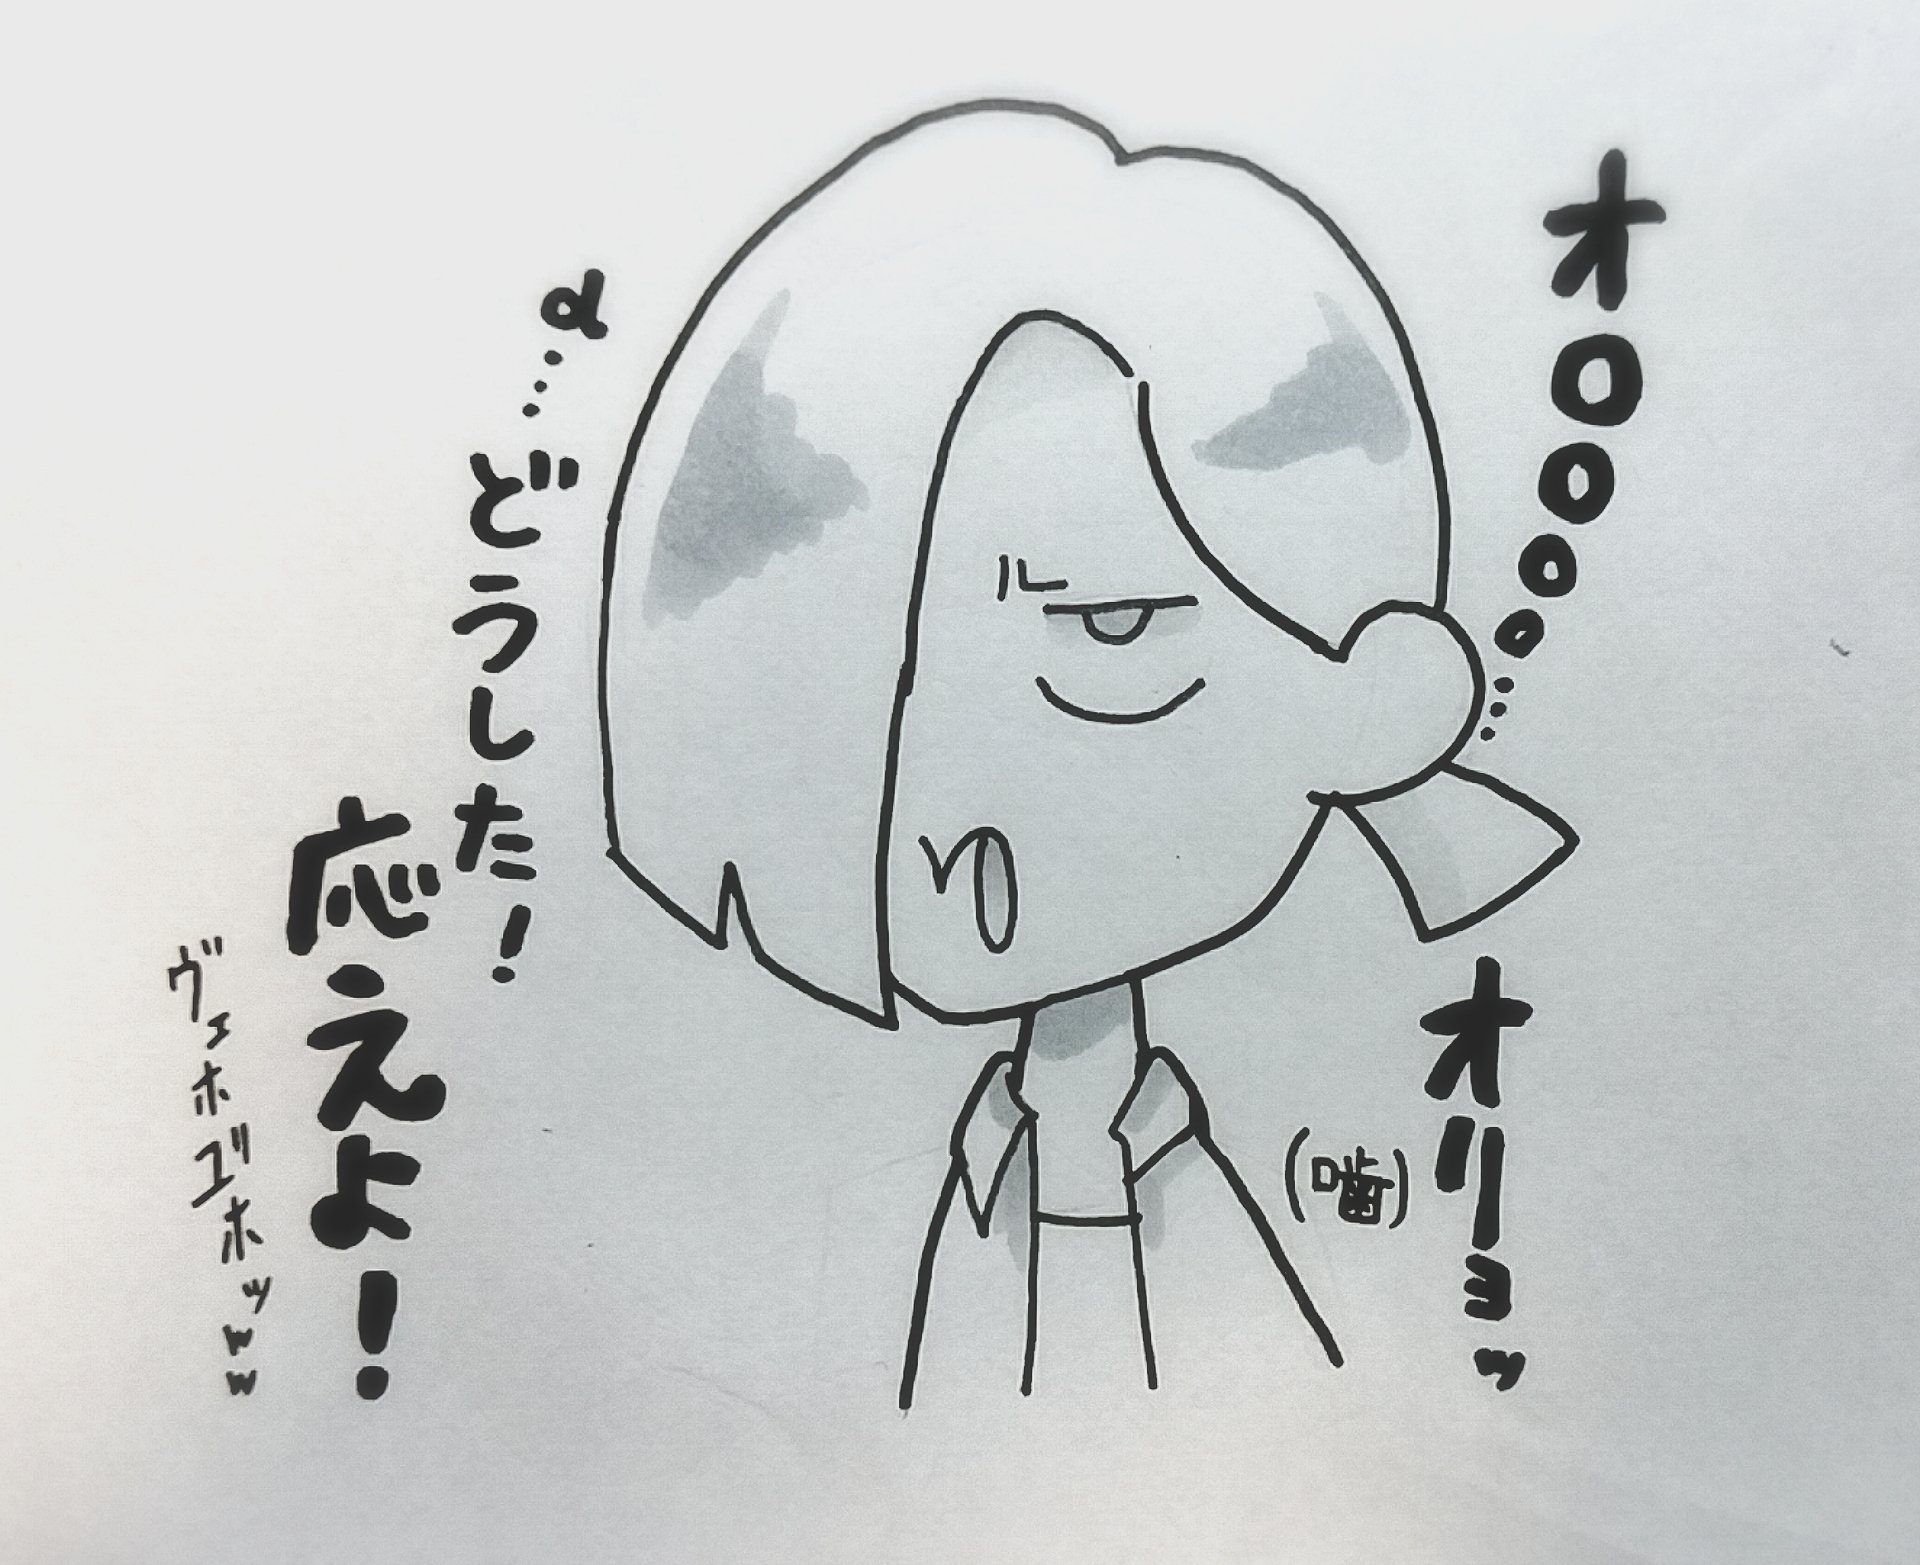 オOOOo…
オリョッ
(噛)
α…どうした!
応えよ!
ヴェホゴホッww